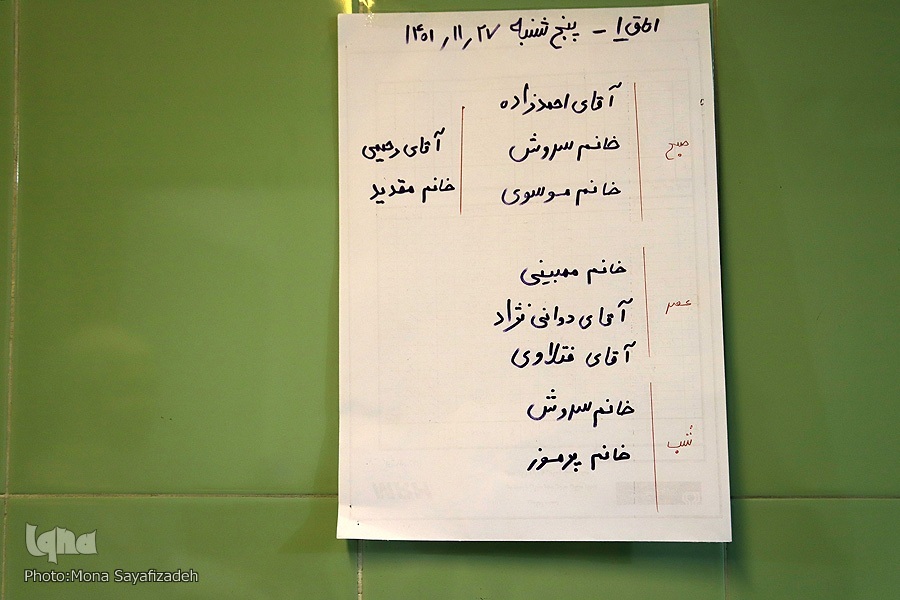 اتاق ۱ - پنج شنبه ۱۴۰۱٫۱۱٫۲۷
صبح
آقای احمدزاده
خانم سروش
خانم موسوی
آقای رحیمی
خانم مقدید
عصر
خانم ممبینی
آقای دوانی نژاد
آقای فتلاوی
شب
خانم سروش
خانم پرموز
iqna
Photo:Mona Sayafizadeh